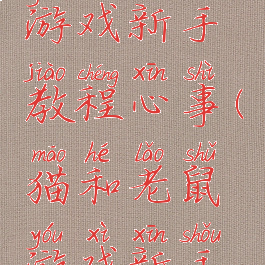 游戏新手
jiào chéng xīn shì
教程心事(
māo hé lǎo shǔ
猫和老鼠
yóu xì xīn shǒu
游戏新手